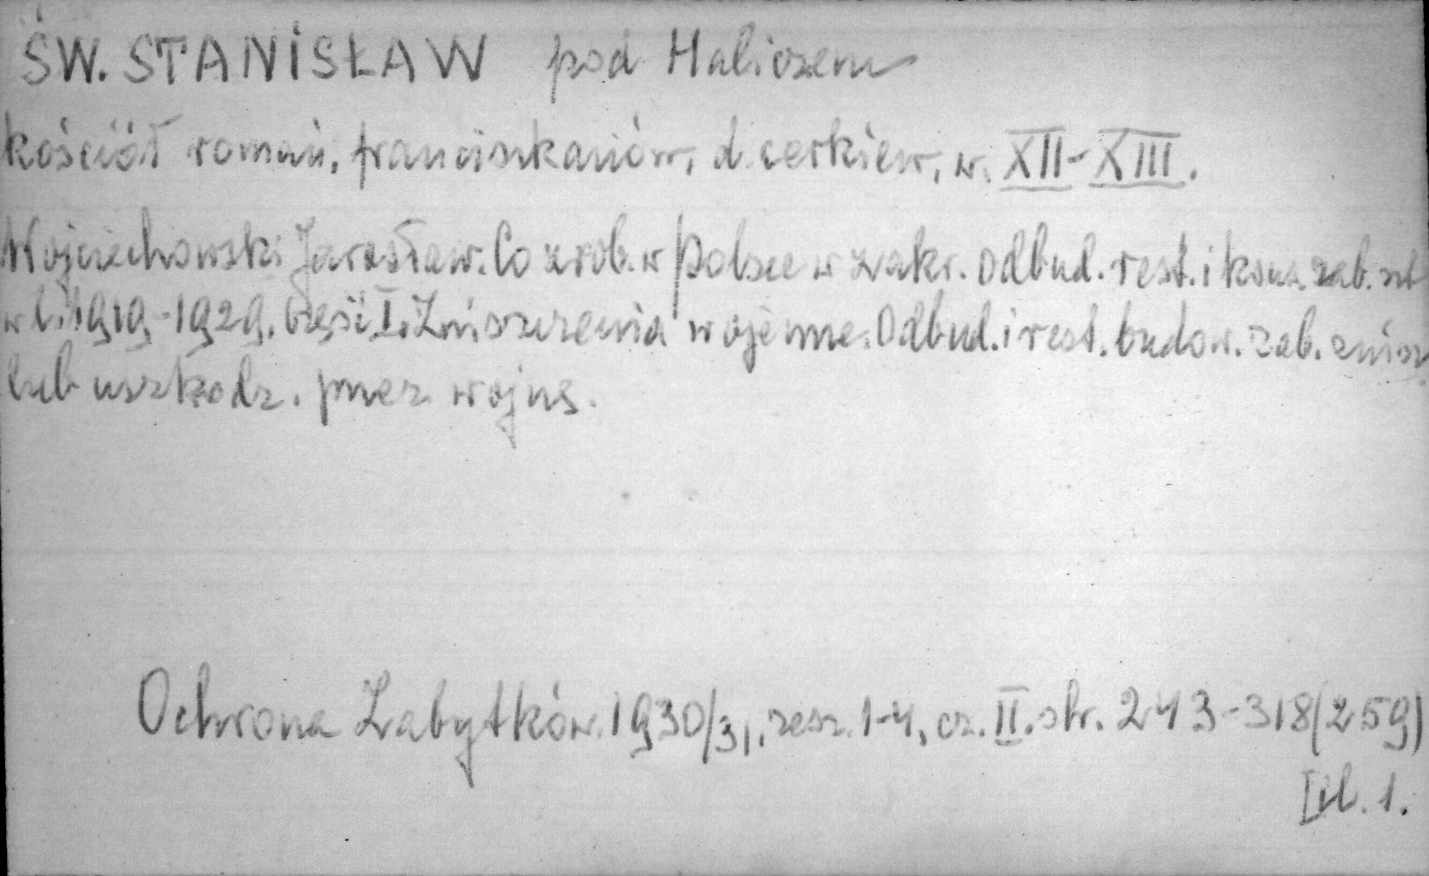 ŚW. STANISŁAW pod Haliczem
kościół romań, franciszkanów, d. cerkiew, w. XII-XIII.
Wojciechowski Jarosław. Co zrob. w Polsce w zakr. odbud. rest. i kons. zab. szt
w l. 1919-1929. Część I. Zniszczenia wojenne. Odbud. i rest. budow. zab. znisz
lub uszkodz. przez wojnę.
Ochrona Zabytków. 1930/31, zesz. 1-4, cz. II. str. 243-318 (259)
[il. 1.